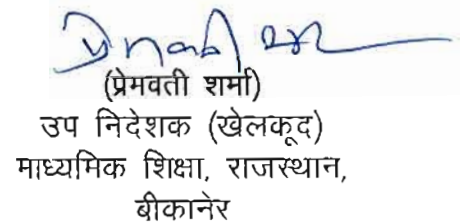 (प्रेमवती शर्मा)
उप निदेशक (खेलकूद)
माध्यमिक शिक्षा, राजस्थान,
बीकानेर